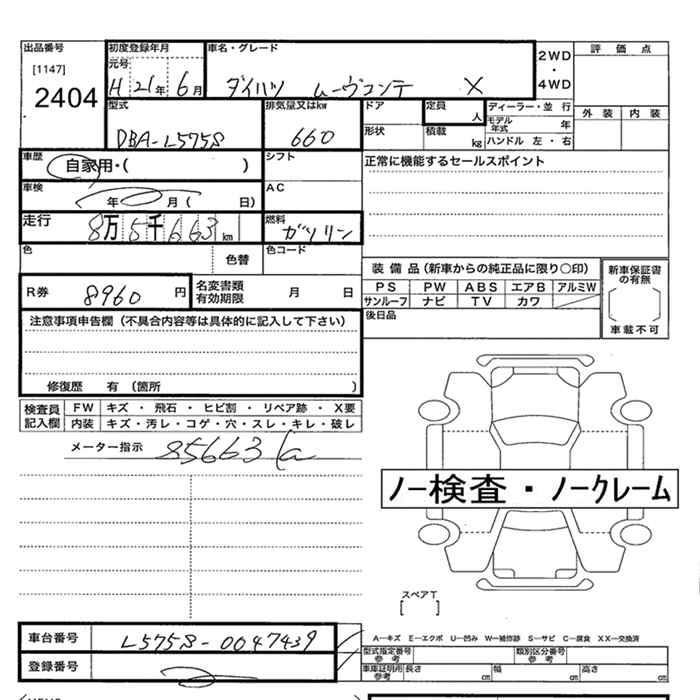 出品番号 初度登録年月 車名・グレード 2WD 評価点
[1147] 元号
2404 H 21 年 6 月 ダイハツ ムーヴコンテ X ・ 4WD
型式 排気量又はkw ドア 定員 人 ディーラー・並行 外装 内装
DBA-L575S 660 モデル年式 年
形状 積載 kg ハンドル 左・右
車歴 自家用・( ) シフト 正常に機能するセールスポイント
車検 年 月 ( 日) AC
走行 8万 5千 663 km 燃料 ガソリン
色 色替 色コード
装備品(新車からの純正品に限り〇印) 新車保証書の有無
R券 8960 円 名変書類有効期限 月 日 PS PW ABS エアB アルミW
サンルーフ ナビ TV カワ
後日品 車載不可
注意事項申告欄(不具合内容等は具体的に記入して下さい)
修復歴 有 (箇所 )
検査員記入欄 FW キズ ・ 飛石 ・ ヒビ割 ・ リペア跡 ・ X要
内装 キズ・汚レ・コゲ・穴・スレ・キレ・破レ
メーター指示 85663
ノー検査・ノークレーム
スペアT
[ ]
車台番号 L575S-0047439 A―キズ E―エクボ U―凹み W―補修跡 S―サビ C―腐食 XX―交換済
型式指定番号 参考 類別区分番号 参考
登録番号 車庫証明所 参考 長さ cm 幅 cm 高さ cm